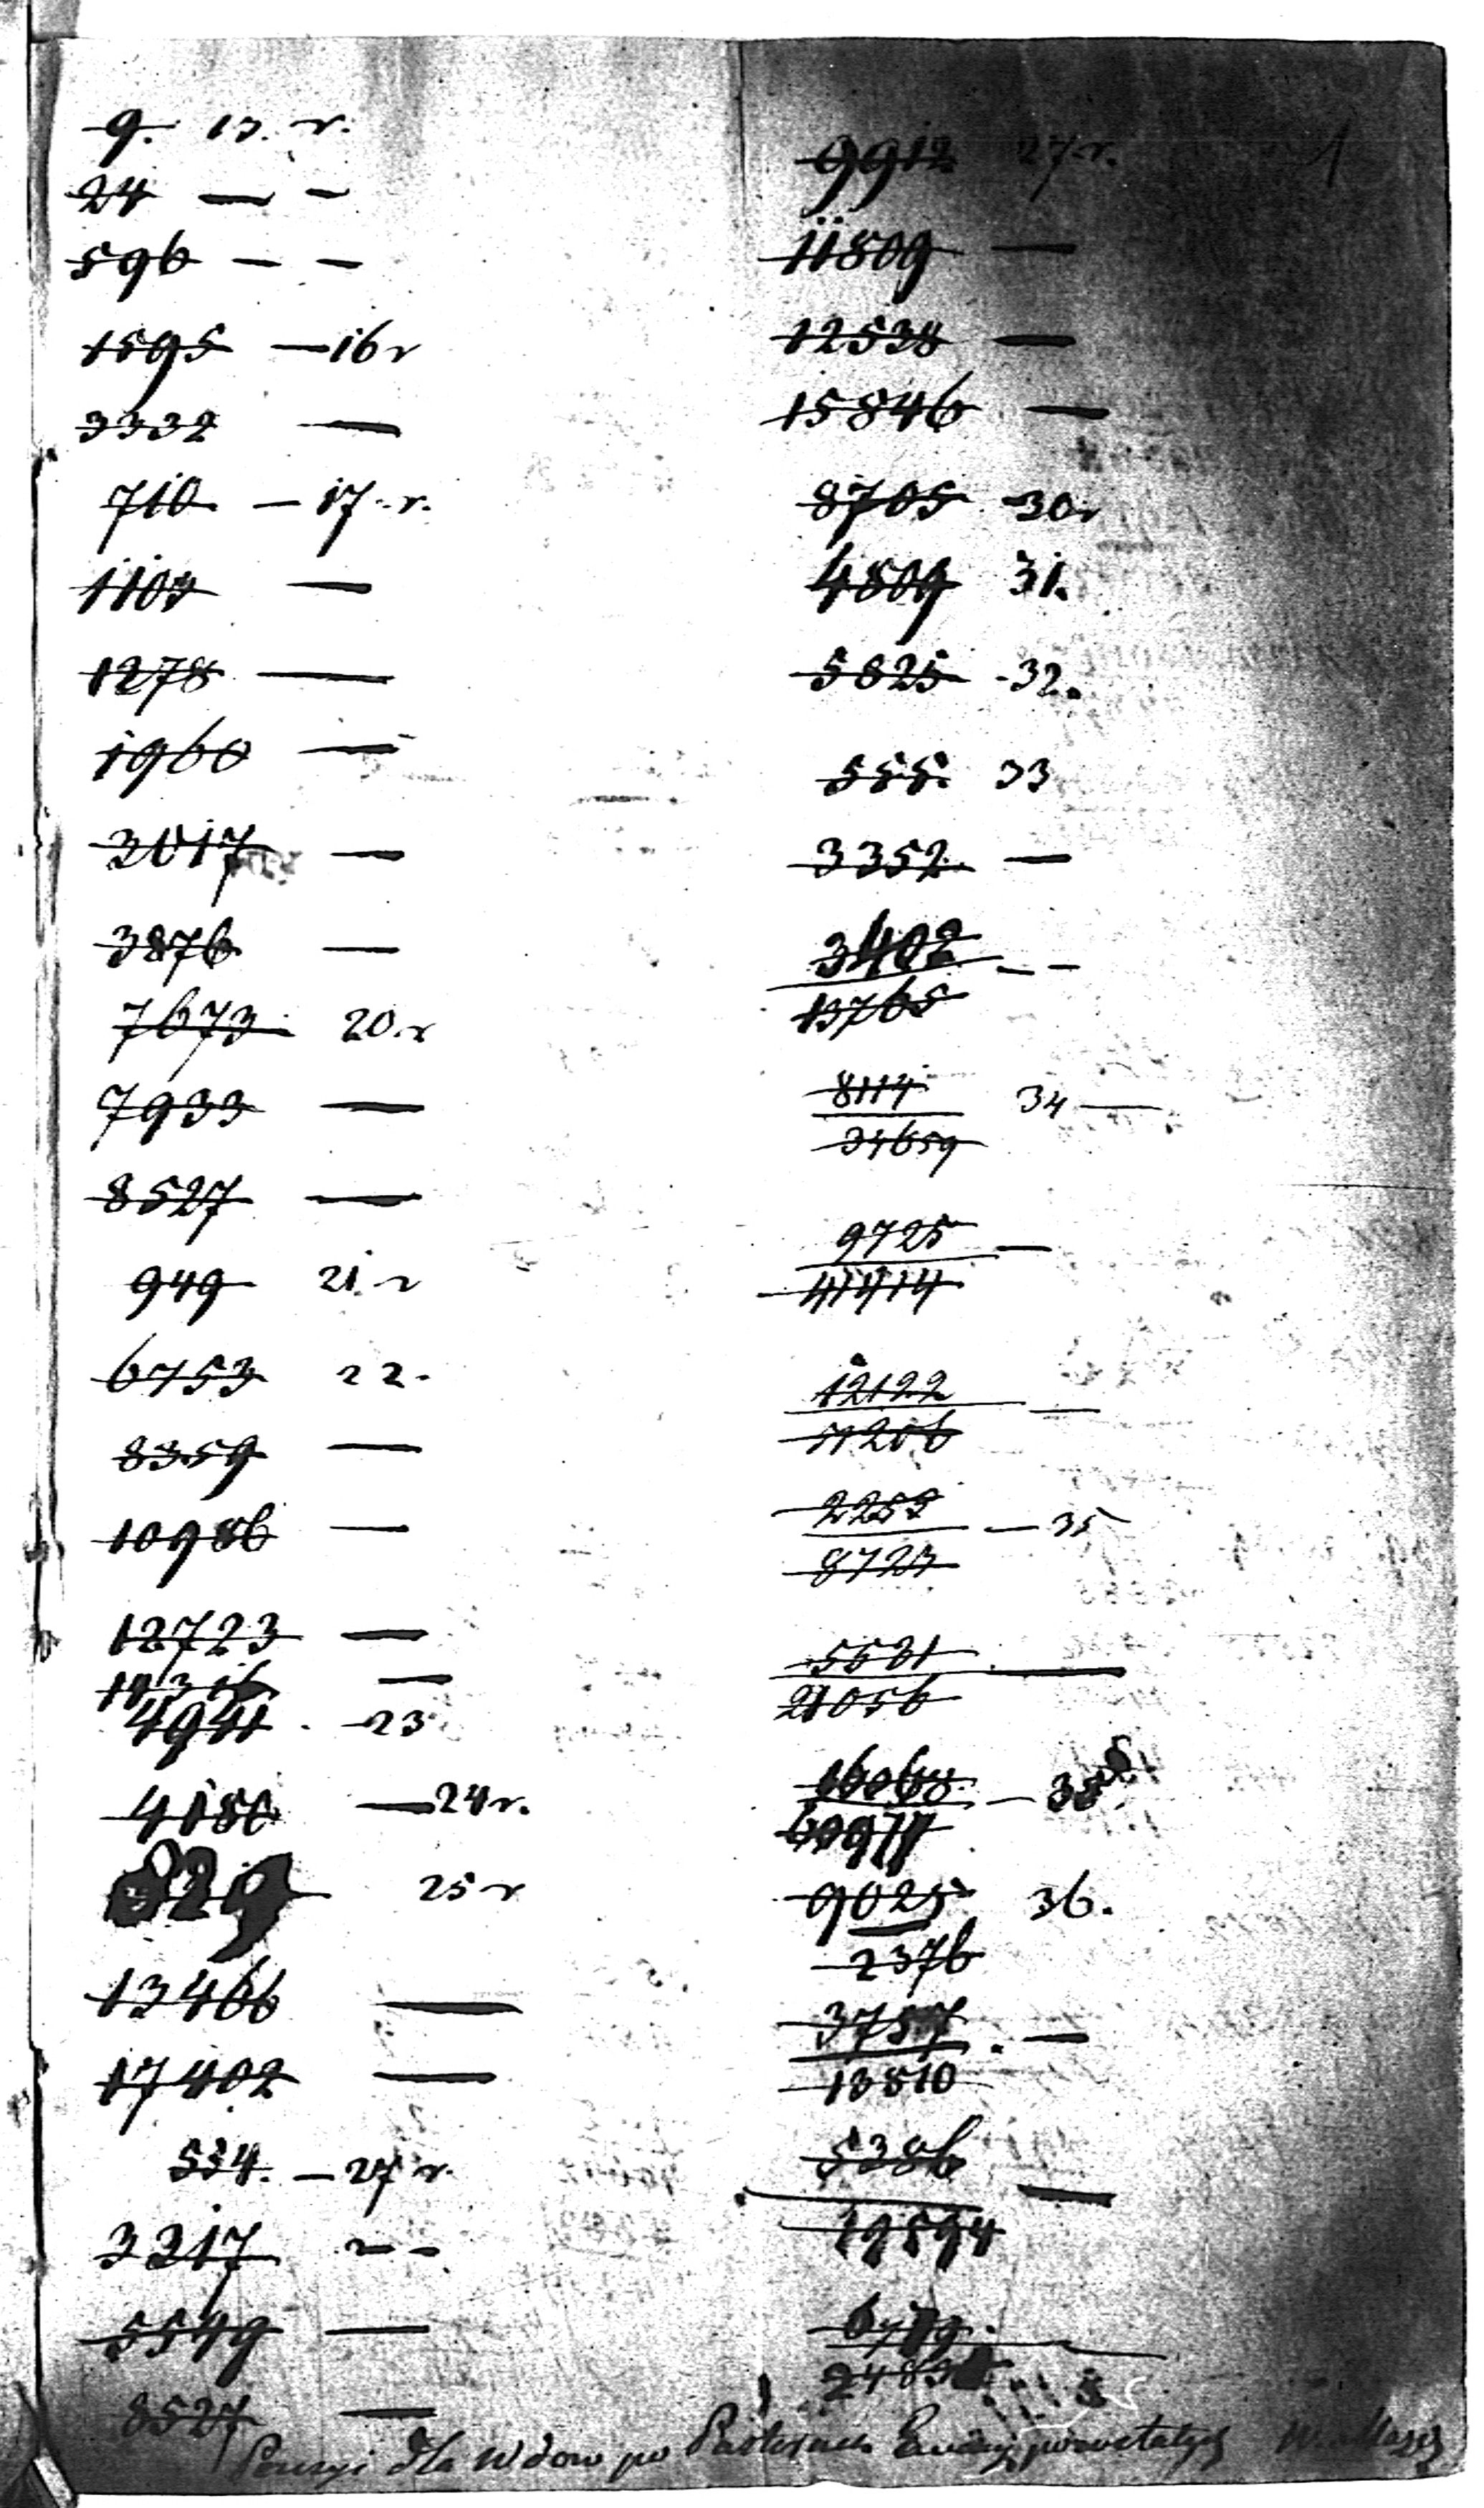 9. 13. r.
24 — -
596 - -
1595 — 16 r
3332 —
710 — 17. r.
1104 —
1278 —
1960 —
3017 —
3876 —
7673 20. r
7933 —
8527 —
949 21. r
6753 22.
8359 —
10986 —
12723 —
—
4941 - 23
4150 — 24 r.
829 25 r
13466 —
17402 —
534. — 27 r.
3317 - -
5549 —
8527 —
9912 27. r. 1
11809 —
12538 —
15846 —
8705 - 30 r
4809 31.
5825 - 32.
555. 33
3352. —
3402 - -
13765
8114 34 —
34659
9725 —
41414
12122 —
51206
2252 — 35
8723
5531 —
21056
16068 —
9025 36.
2376
3757. —
13510
5386 —
19594
Pensyi dla Wdow po Pastorach